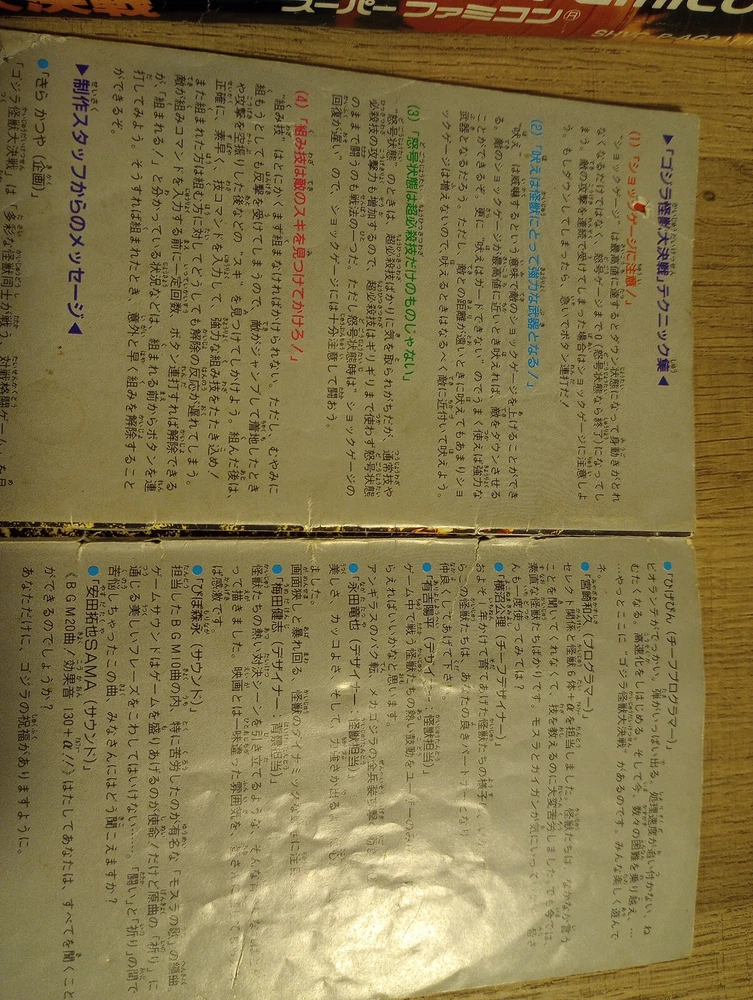 スーパーファミコン®
▶「ゴジラ怪獣大決戦」テクニック集◀
(1)「ショックゲージに注意!」
"ショックゲージ"は最高値に達するとダウン状態になって身動きがとれ
なくなるだけではなく、怒号ゲージまで0(怒号状態なら終了)になってし
まう。敵の攻撃を連続で受けてしまった場合はショックゲージに注意しよ
う。もしダウンしてしまったら、急いでボタン連打だ!
(2)「吠えは怪獣にとって強力な武器となる!」
"吠え"は威嚇するという意味で敵のショックゲージを上げることができ
る。敵のショックゲージが最高値に近いとき吠えれば、敵をダウンさせる
ことができるぞ。更に"吠えはガードできない"のでうまく使えば強力な
武器となるだろう。ただし、敵との距離が遠いときに吠えてもあまりショ
ックゲージは増えないので、吠えるときはなるべく敵に近付いて吠えよう。
(3)「怒号状態は超必殺技だけのものじゃない」
"怒号状態"のときは、超必殺技ばかりに気を取られがちだが、通常技や
必殺技の攻撃力も増加するので、超必殺技はギリギリまで使わず怒号状態
のままで闘うのも戦法の一つだ。ただし怒号状態時は"ショックゲージの
回復が遅い"ので、ショックゲージには十分注意して闘おう。
(4)「組み技は敵のスキを見つけてかけろ!」
"組み技"はとにかくまず組まなければかけられない。ただし、むやみに
組もうとしても反撃を受けてしまうので、敵がジャンプして着地したとき
や攻撃を空振りした後などの"スキ"を見つけてしかけよう。組んだ後は、
正確に、素早く、技コマンドを入力して、強力な組み技をたたき込め!
また組まれた方は組む方に対してどうしても解除の反応が遅れてしまう。
敵が組みコマンドを入力する前に一定回数、ボタン連打すれば解除できる
が、「組まれる!」と分かっている状況などは、組まれる前からボタンを連
打してみよう。そうすれば組まれたとき、意外と早く組みを解除すること
ができるぞ。
▶制作スタッフからのメッセージ◀
●「きら かつや(企画)」
「ゴジラ怪獣大決戦」は「多彩な怪獣同士が戦う、対戦格闘ゲーム」を目
●「ひげぴん(チーフプログラマー)」
ビオランテがでっかい。弾がいっぱい出る。処理速度が追い付かない。ね
むたくなる。高速化をしはじめる。そして今、数々の困難を乗り越え…
…やっとここに"ゴジラ怪獣大決戦"があるのです。みんな楽しく遊んで
ネ。
●「宮崎和久(プログラマー)」
セレクト関係と怪獣6体+αを担当しました。怪獣たちは、なかなか言う
ことを聞いてくれなくて、技を教えるのに大変苦労しました。でも今では、
素直な怪獣たちばかりです。モスラとガイガンが気にいって
んも一度使ってみては?
●「横沼公理(チーフデザイナー)」
およそ1年かけて育てあげた怪獣たちの様子
らこの怪獣たちは、あなたの良きパートナーとなり
仲良くしてあげて下さい。
●「有吉陽平(デザイナー:怪獣担当)」
ゲーム中で戦う怪獣たちの熱い鼓動をユーザーのみ
らえればいいかなと思います。
●「永田竜也(デザイナー:怪獣担当)」
アンギラスのバク転、メカゴジラの全兵装
美しさ、カッコよさ、そして、力強さが出る
ました。
●「梅田健志(デザイナー:背景担当)」
画面狭しと暴れ回る、怪獣のダイナミックな
怪獣たちの熱い対決シーンを引き立てるような、そんな
って描きました。映画とは一味違った雰囲気を、
ば感激です。
●「ぴぽ森永(サウンド)」
担当したBGM10曲の内、特に苦労したのが有名な「モスラの歌」の編曲。
ゲームサウンドはゲームを盛りあげるのが使命!だけど原曲の「祈り」に
通じる美しいフレーズをこわしてはいけない……。「闘い」と「祈り」の間で
苦悩しちゃったこの曲、みなさんにはどう聞こえますか?
●「安田拓也SAMA(サウンド)」
《BGM20曲/効果音130+α//》はたしてあなたは、すべてを聞くこと
ができるのでしょうか?
あなただけに、ゴジラの祝福がありますように。